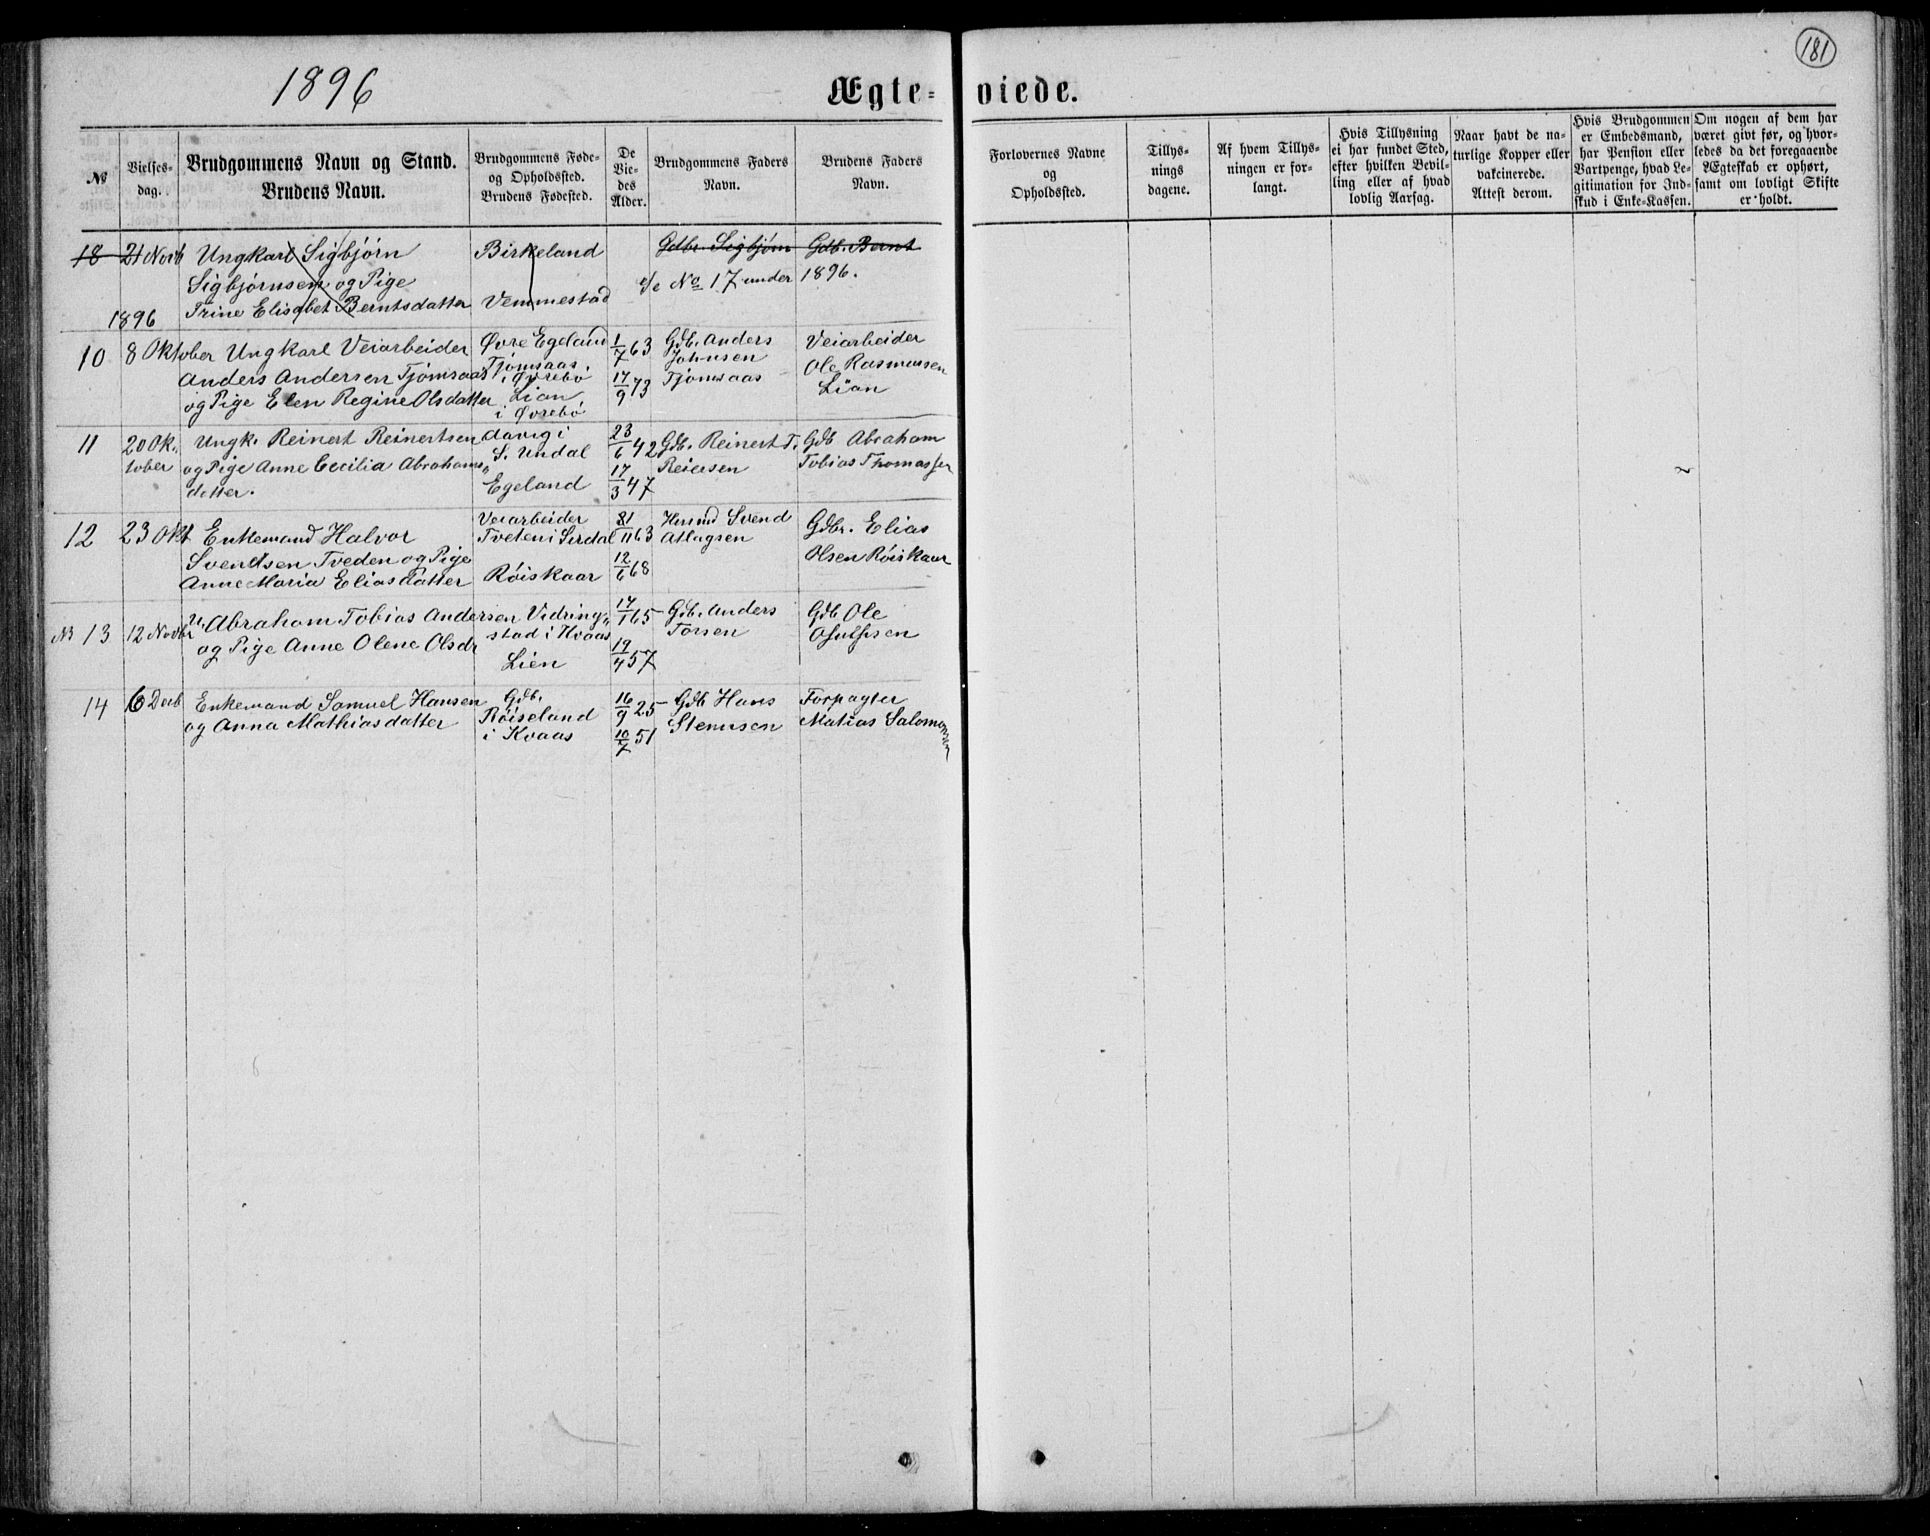 181
1896
Ægte-viede.
№
Vielses-
dag.
Brudgommens Navn og Stand.
Brudens Navn.
Brudgommens Føde-
og Opholdssted.
Brudens Fødested.
De
Vie-
des
Alder.
Brudgommens Faders
Navn.
Brudens Faders
Navn.
Forlovernes Navne
og
Opholdssted.
Tillys-
nings
dagene.
Af hvem Tillys-
ningen er for-
langt.
Hvis Tillysning
ei har fundet Sted,
efter hvilken Bevil-
ling eller af hvad
lovlig Aarsag.
Naar havt de na-
turlige Kopper eller
vakcinerede.
Attest derom.
Hvis Brudgommen
er Embedsmand,
har Pension eller
Vartpenge, hvad Le-
gitimation for Ind-
skud i Enke-Kassen.
Om nogen af dem har
været givt før, og hvor-
ledes da det foregaaende
Ægteskab er ophørt,
samt om lovligt Skifte
er holdt.
18 21 Novb Ungkarl Sigbjørn Birkeland Gdbr. Sigbjørn Gdb. Bernt
Sigbjørnsen og Pige c/e No 17 under 1896.
Trine Elisabet Berntsdatter Vemmestad
1896
10 8 Oktober Ungkarl Veiarbeider Øvre Egeland 1/7 63 Gdb. Anders Veiarbeider
Anders Andersen Tjomsaas Tjomsaas i Øvrebø Johnsen Ole Rasmussen
og Pige Elen Regine Olsdatter Lian 17/9 73 Tjomsaas Lian
i Øvrebø
11 20 Ok- Ungk. Reinert Reinertsen davig i 23/6 42 Gdb. Reinert T. Gdb Abraham
tober og Pige Anne Cecilia Abrahams S. Undal Reiersen Tobias Thomassen
datter. Egeland 17/3 47
12 23 Okt Enkemand Halvor Veiarbeider 31/11 63 Husmd Svend Gdbr. Elias
Svendsen Tveden og Pige Tveten i Sirdal Atlagsen Olsen Røiskaar
Anne Maria Eliasdatter Røiskaar 12/6 68
№ 13 12 Novbr U. Abraham Tobias Andersen Vidring- 17/1 65 Gdb. Anders Gdb Ole
og Pige Anne Olene Olsdr stad i Kvaas Torsen Osulfsen
Lien 19/4 57
14 6 Decb Enkemand Samuel Hansen Gdb. 16/9 25 Gdb Hans Forpagter
og Anna Mathiasdatter Røiseland Stenusen Matias Salomonsen
i Kvaas 10/7 51